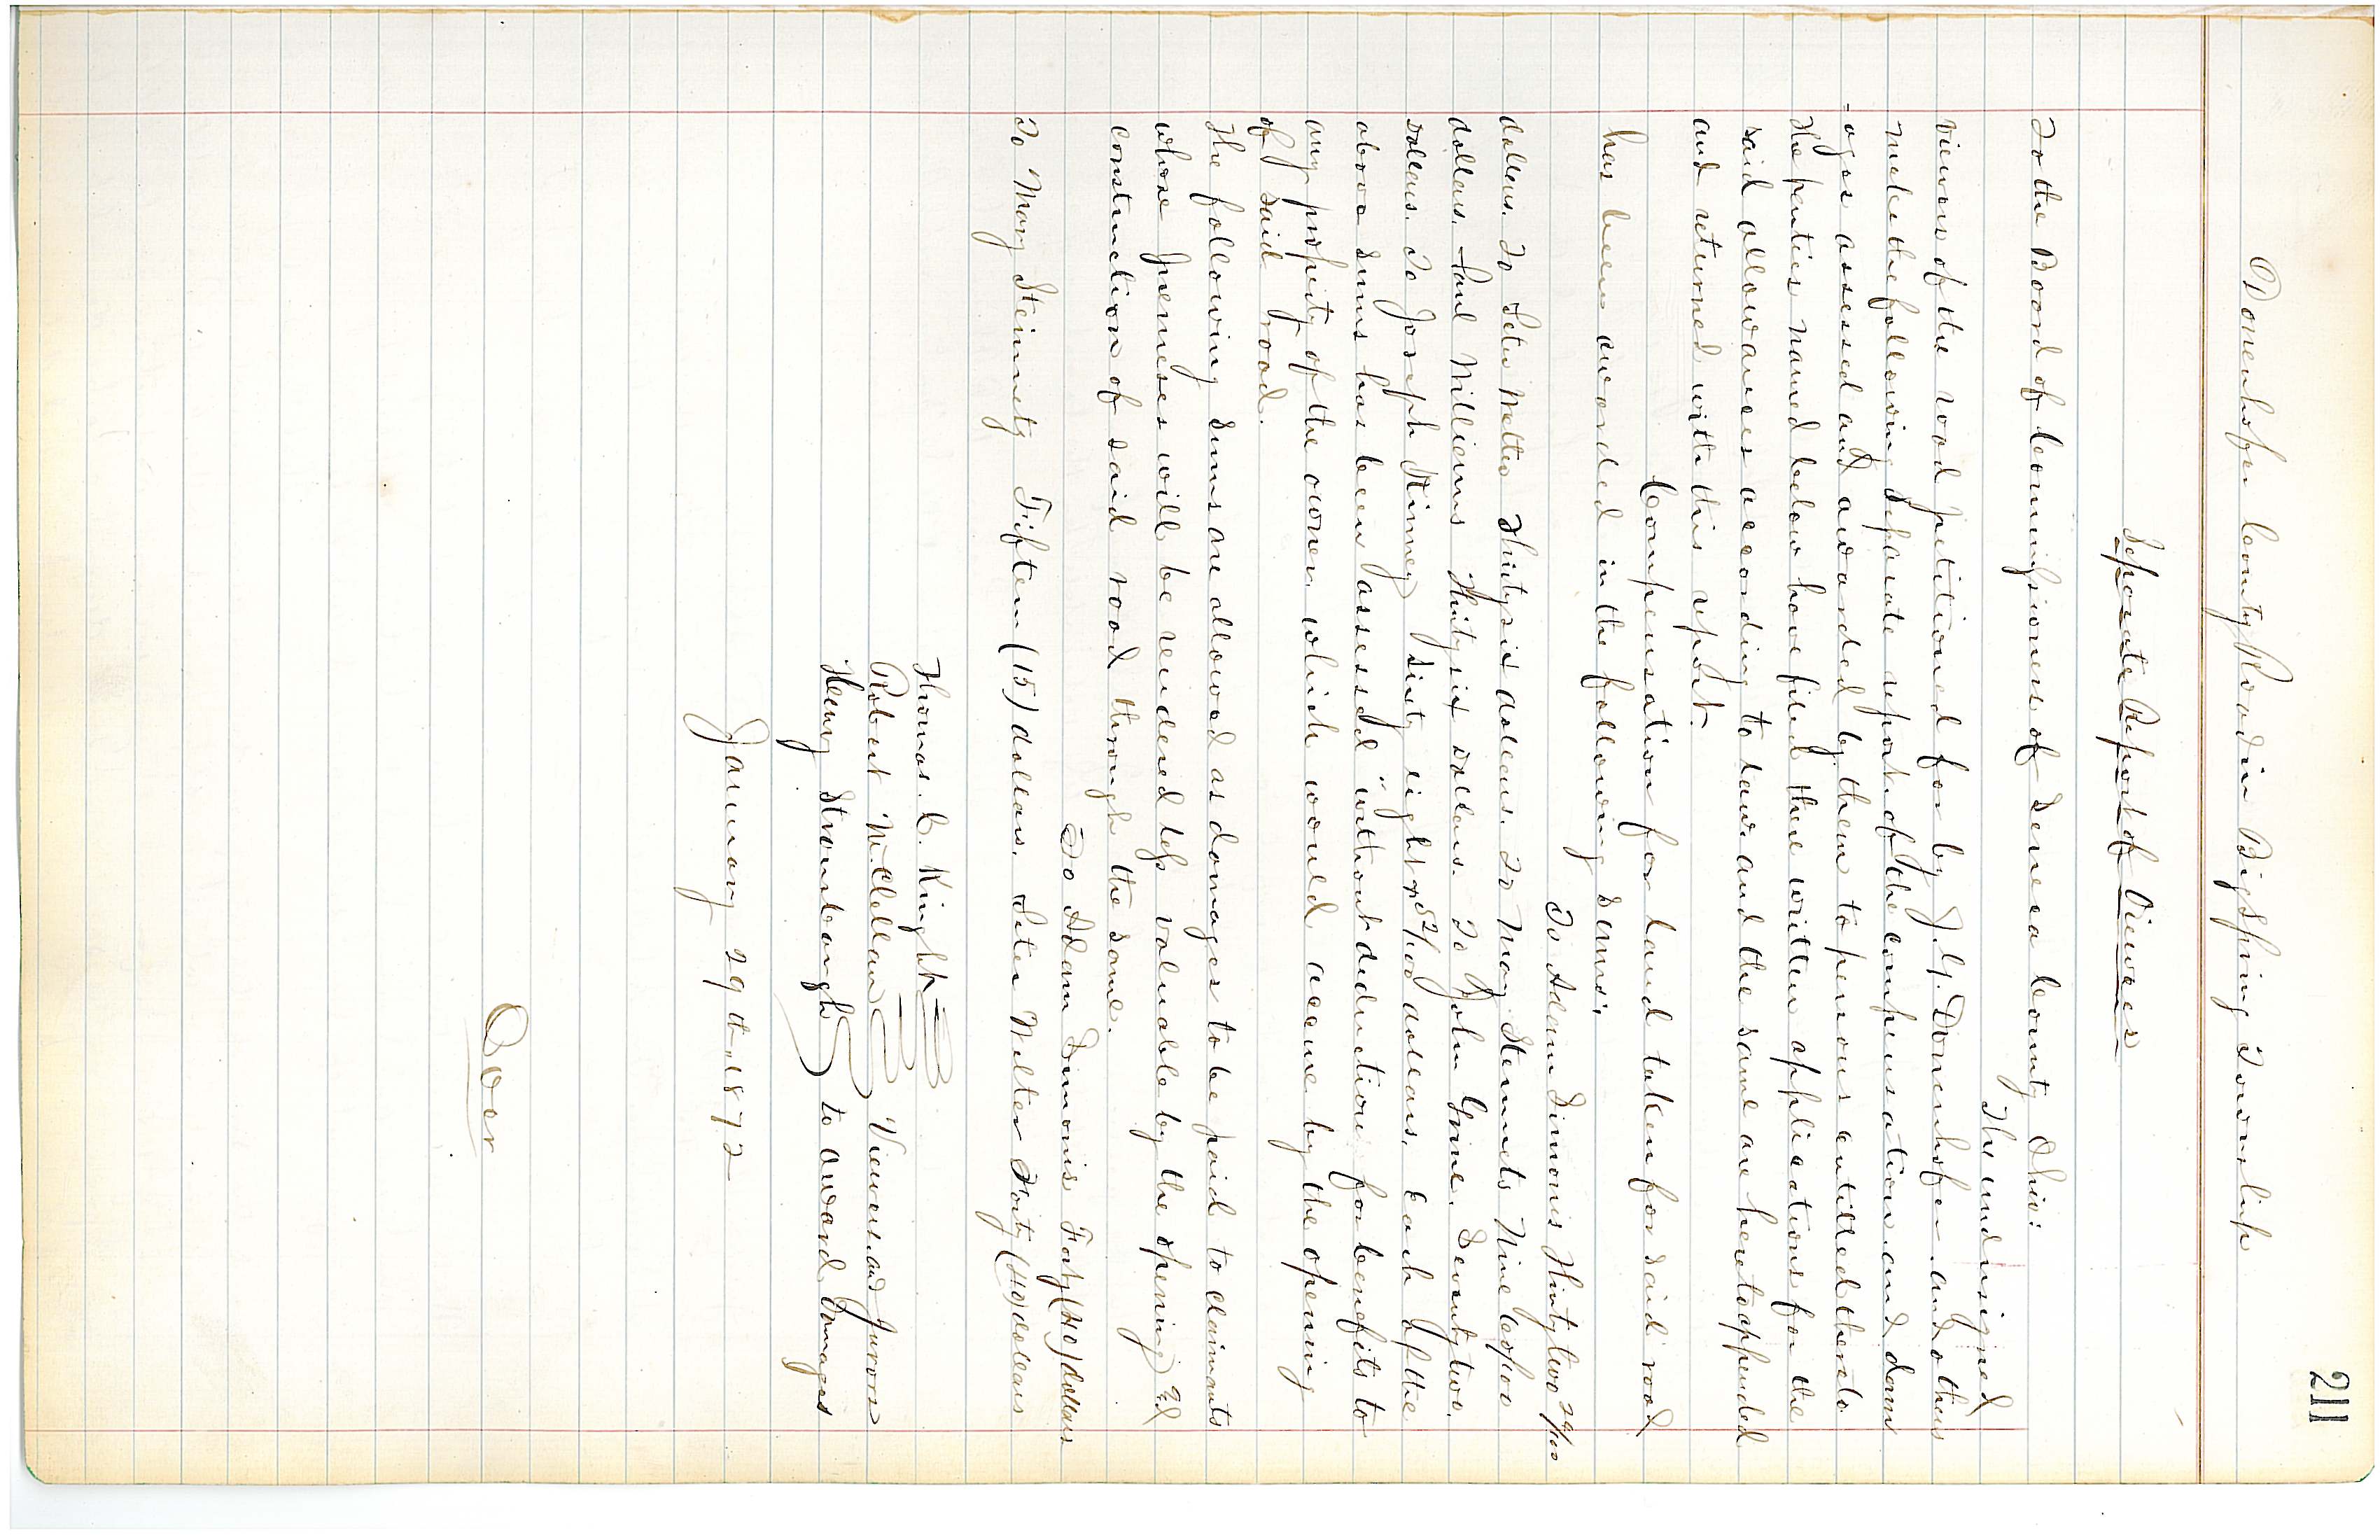 211
Donenhofer County Road in Big Spring Township
Seperate Report of Viewers
To the Board of Commissioners of Seneca County Ohio:
The undersigned
viewers of the road petitioned for by J. Donenhofer and others
make the following seperate report of the compensation and dam
-ages assessed and awarded by them to persons entitled thereto
the parties named below have filed there written applications for the
said allowances according to law and the same are heretoappended
and returned with this report.
Compensation for land taken for said road
has been awarded in the following sums:
To Adam Simonis Thirty two 29/100
dollars. To Peter Welter Thirty six dollars. To Mary Steinmets Nine 60/100
dollars. Paul Williams Thirty six dollars. To John Grine. Seventy two
dollars. To Joseph Kinney Sixty eight & 52/100 dollars. Each of the
above sums has been assessed "without deductions for benefits to
any property of the owner which would accrue by the opening
of said road.
The following sums are allowed as damages to be paid to claimants
whose premeses will be rendered less valuable by the opening and
construction of said road through the same.
To Adam Simonis Forty (40) dollars
To Mary Steinmetz Fifteen (15) dollars. Peter Welter Forty (40) dollars
Thomas. C. Knight
Robert McClellan Viewers and Jurors
Henry Stroubaugh to award Damages
January 29th 1872
Over